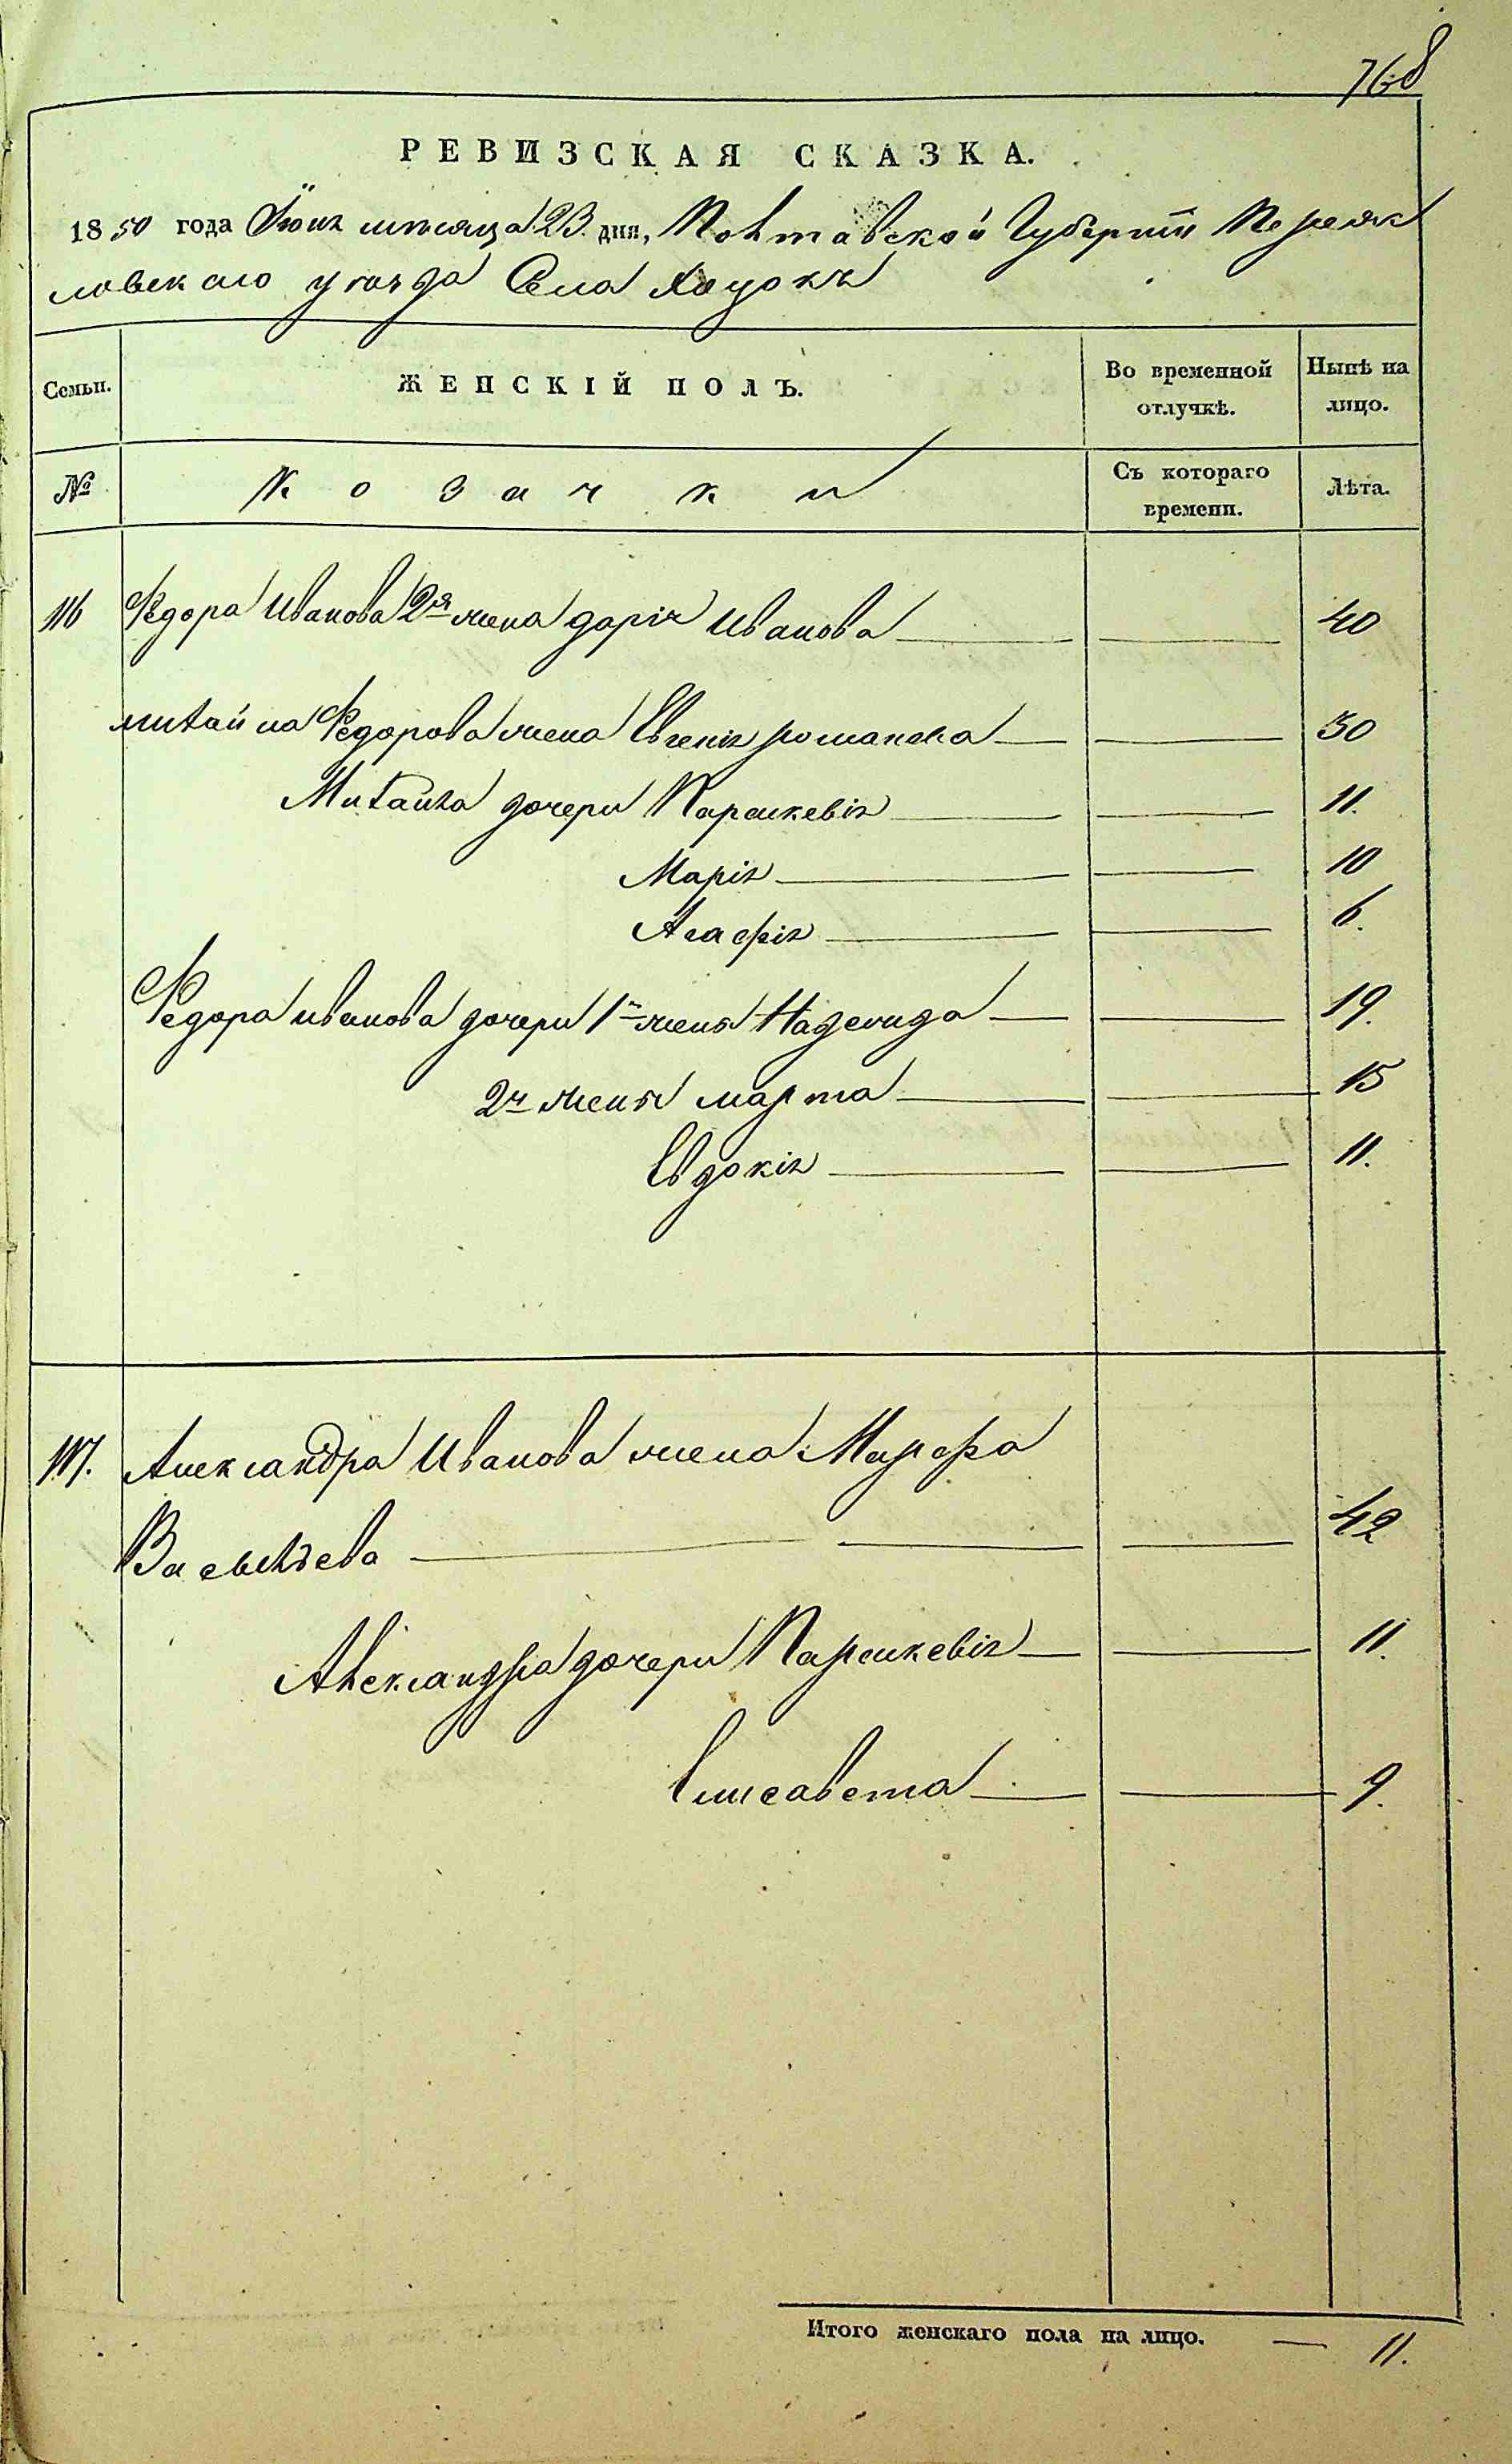 768
РЕВИЗСКАЯ СКАЗКА.
1850 года Июня мѣсяца 23. дня, Полтавской Губерніи Переяс
ловскаго уѣзда Села Хоцокъ
Семьи. ЖЕНСКІЙ ПОЛЪ. Во временной отлучкѣ. Нынѣ на лицо.
№ Козачки Съ котораго времени. Лѣта.
116 Федора Иванова 2я жена дарія Иванова 40
михайла Федорова жена Евгенія романова 30
Михайла дочери Параскевія 11.
Марія 10
Агафія 6.
Федора иванова дочери 1й жены Надежда 19.
2й жены марта 15
Евдокія 11.
117. Александра Иванова жена Марфа
Васильева 42
Александра дочери Параскевія 11.
Елисавета 9.
Итого женскаго пола на лицо. — 11.